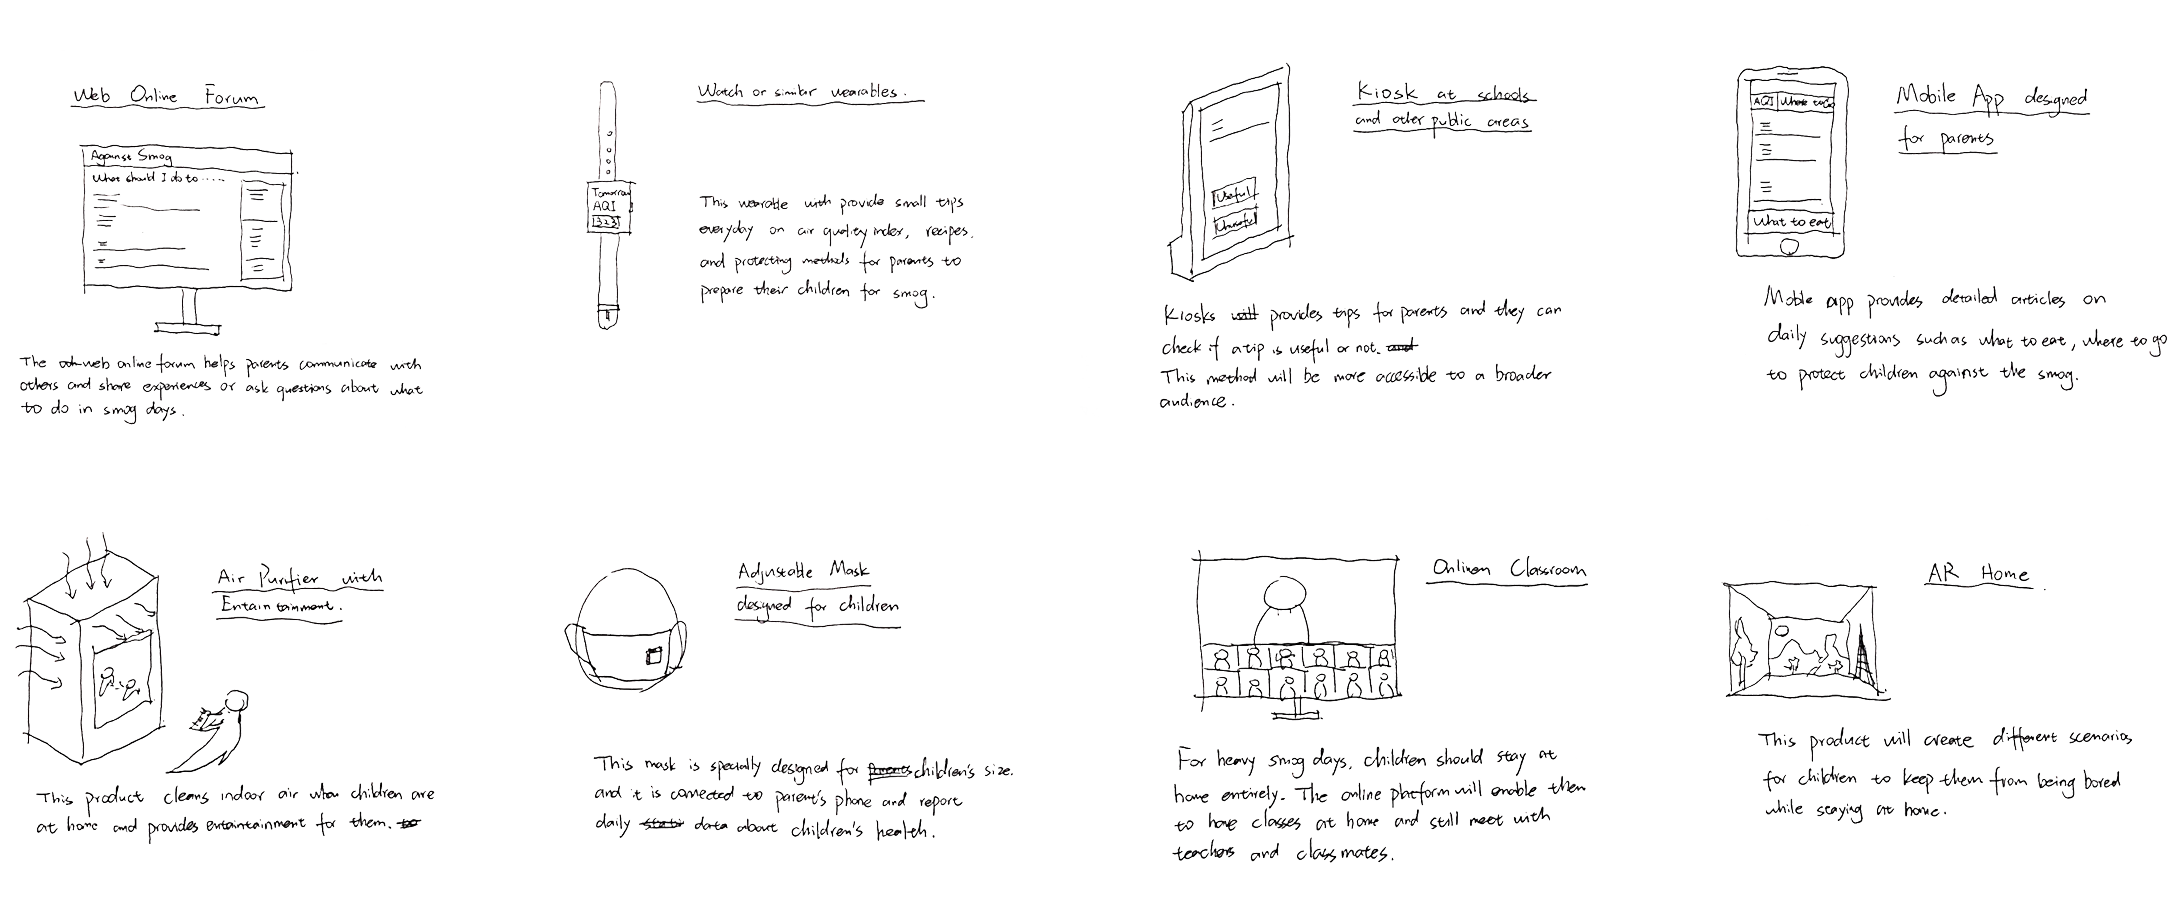 Web Online Forum
Against Smog
What should I do to .....
The web online forum helps parents communicate with
others and share experiences or ask questions about what
to do in smog days.
Watch or similar wearables.
Tomorrow
AQI
323
This wearable with provide small tips
everyday on air quality index, recipes,
and protecting methods for parents to
prepare their children for smog.
Kiosk at schools
and other public areas
Useful
Unuseful
Kiosks will provides tips for parents and they can
check if a tip is useful or not. and
This method will be more accessible to a broader
audience.
Mobile App designed
for parents
AQI Where to Go
What to eat
Moble app provides detailed articles on
daily suggestions such as what to eat, where to go
to protect children against the smog.
Air Purifier with
Entaintainment.
This product cleans indoor air when children are
at home and provides entaintainment for them. to
Adjustable Mask
designed for children
This mask is specially designed for parents children's size.
and it is connected to parent's phone and report
daily data about children's health.
Onlinen Classroom
For heavy smog days, children should stay at
home entirely. The online platform will enable them
to have classes at home and still meet with
teachers and classmates.
AR Home.
This product will create different scenarios
for children to keep them from being bored
while staying at home.